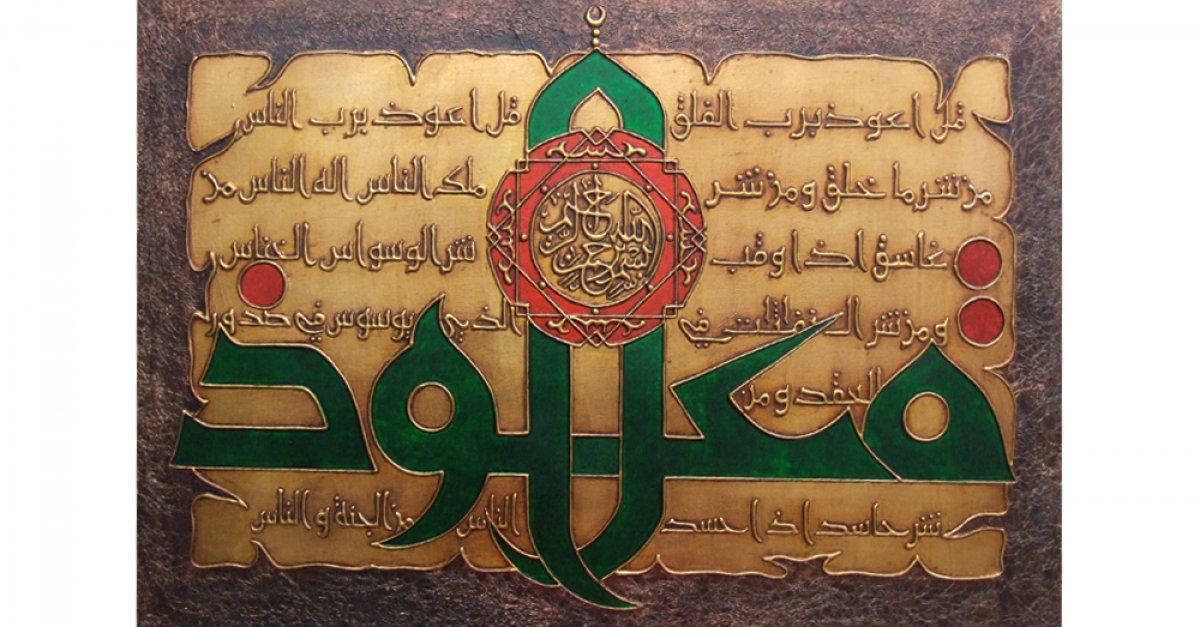 بسم الله الرحمن الرحيم
قل اعوذ
قل اعوذ برب الفلق
من شر ما خلق ومن شر
غاسق اذا وقب
ومن شر النفثت في
العقد ومن
شر حاسد اذا حسد
قل اعوذ برب الناس
ملك الناس اله الناس من
شر الوسواس الخناس
الذي يوسوس في صدور
الناس من الجنة و الناس